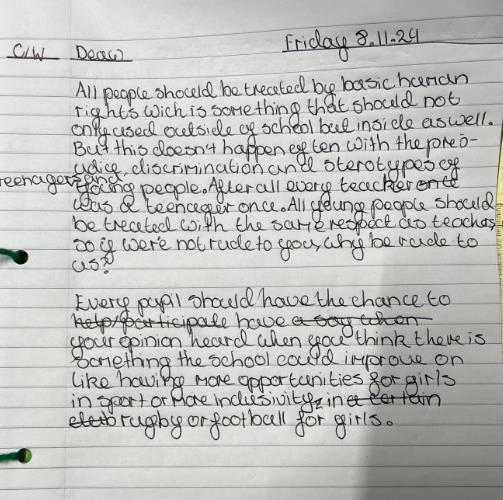 Friday 8.11.24
C/W Dear
All people should be treated by basic human
rights wich is something that should not
only used outside of school but inside as well.
But this doesn't happen often with the prej-
udice, discrimination and sterotypes of
teenagers and young people. After all every teacher
was a teenager once. All young people should
be treated with the same respect as teachers,
so if were not rude to you, why be rude to
us?
Every pupil should have the chance to
help/participate have a say when
your opinion heard when you think there is
something the school could improve on
like having more opportunities for girls
in sport or more inclusivity in a certain
rugby or football for girls.